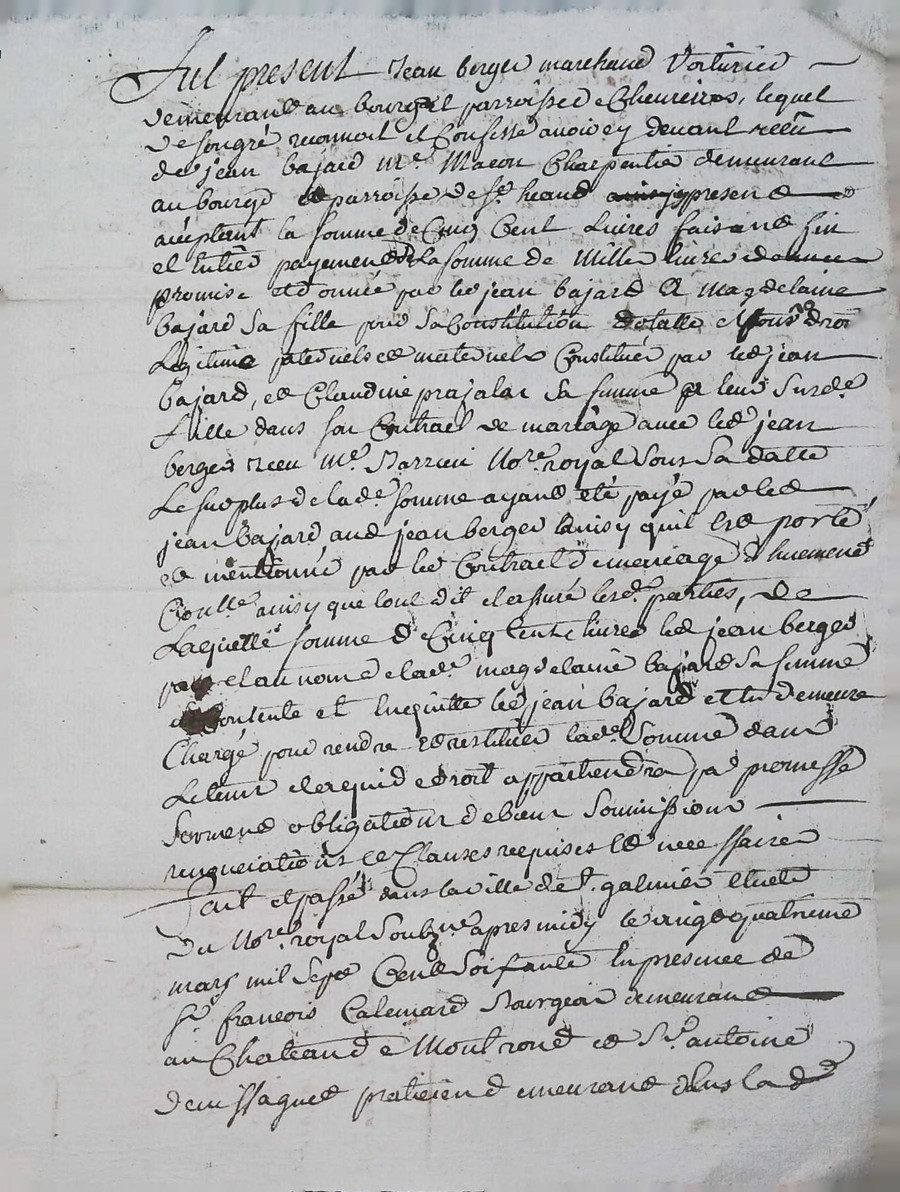 fut present Jean berger marchand Voiturier
demeurant au bourg et parroisse de Chevrieres, lequel
de son gré reconnoit et Confesse avoir ey devant receu
de jean bajard me. Macon Charpentier demeurant
au bourg et parroisse de st. heand present
acceptant la somme de Cinq Cent Livres faisant fin
et entier payement de la somme de Mille livres
promise et donnée par led jean bajard a magdelaine
bajard sa fille pour sa Constitution et tous droi
Legitime paternels et maternels Constitués par led jean
bajard, et Claudine prajalas sa femme a leur surde.
fille dans son Contract de mariage avec led jean
berger receu me. Barrieu Nore. royal sous sa datte
Le surplus de lade. somme ayant eté payé par led
jean bajard aud jean berger ainsy quil est porté
et mentionné par led Contract de mariage
Conlle. ainsy que tout dit et assuré lesd. parties, de
Laquelle somme de Cinq Cents livres led jean berger
et au nom de lade. magdelaine bajard sa femme
Contente et en quitte led jean bajard et en demeure
Chargé pour rendre et restituer lade. Somme dans
Le tems et a qui de droit appartiendra par promesse
serment obligation de biens soumissions
renonciations et Clauses requises et necessaires
Fait et passé dans la ville de st. galmier etude
du Nore. royal soubzne. apres midy le vingt quatrieme
mars mil sept Cent soixante en presence de
sr. francois Calemard Bourgeois demeurant
au Chateau de Montrond et sr. antoine
demissagues praticien demeurant dans lad